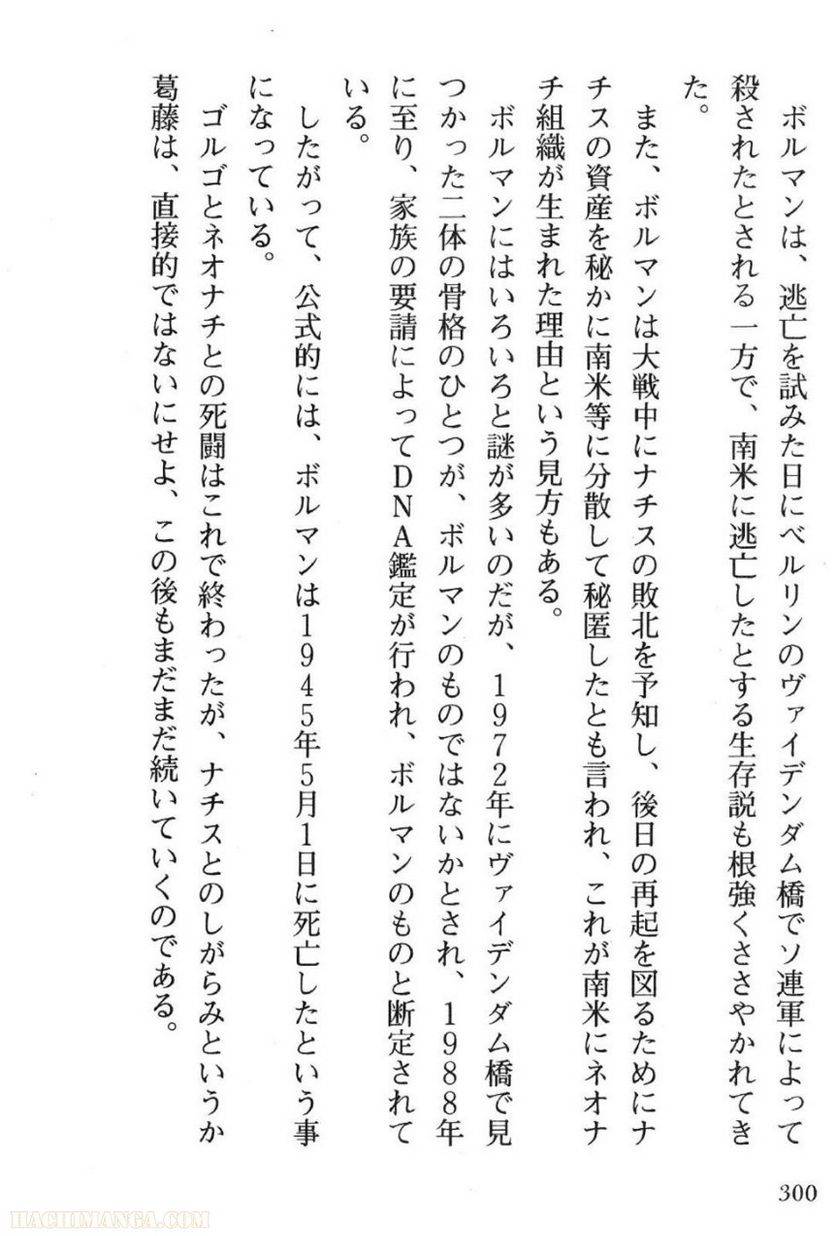 ボルマンは、逃亡を試みた日にベルリンのヴァイデンダム橋でソ連軍によって
殺されたとされる一方で、南米に逃亡したとする生存説も根強くささやかれてき
た。
また、ボルマンは大戦中にナチスの敗北を予知し、後日の再起を図るためにナ
チスの資産を秘かに南米等に分散して秘匿したとも言われ、これが南米にネオナ
チ組織が生まれた理由という見方もある。
ボルマンにはいろいろと謎が多いのだが、1972年にヴァイデンダム橋で見
つかった二体の骨格のひとつが、ボルマンのものではないかとされ、1988年
に至り、家族の要請によってDNA鑑定が行われ、ボルマンのものと断定されて
いる。
したがって、公式的には、ボルマンは1945年5月1日に死亡したという事
になっている。
ゴルゴとネオナチとの死闘はこれで終わったが、ナチスとのしがらみというか
葛藤は、直接的ではないにせよ、この後もまだまだ続いていくのである。
300
HACHIMANGA.COM